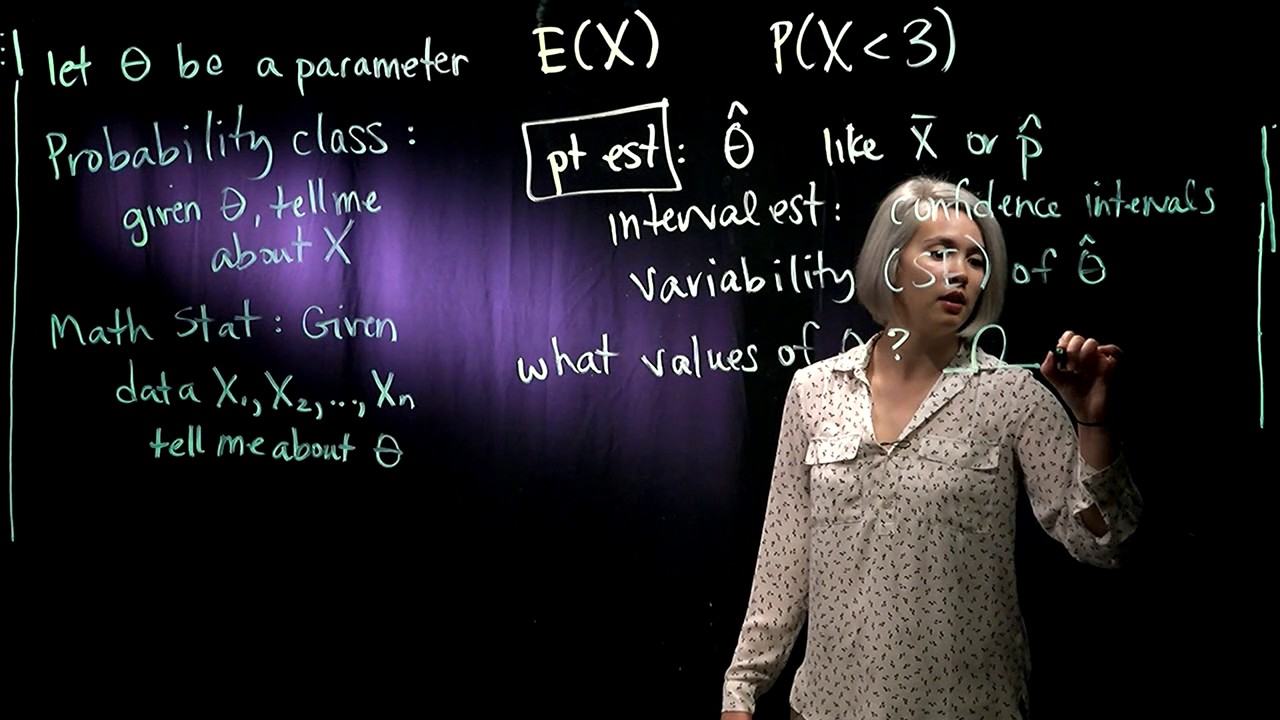 let θ be a parameter
Probability class :
given θ, tell me
about X
Math Stat : Given
data X₁, X₂, ..., Xₙ
tell me about θ
E(X) P(X < 3)
pt est : θ̂ like X̄ or p̂
interval est : confidence intervals
variability (SE) of θ̂
what values of θ ?